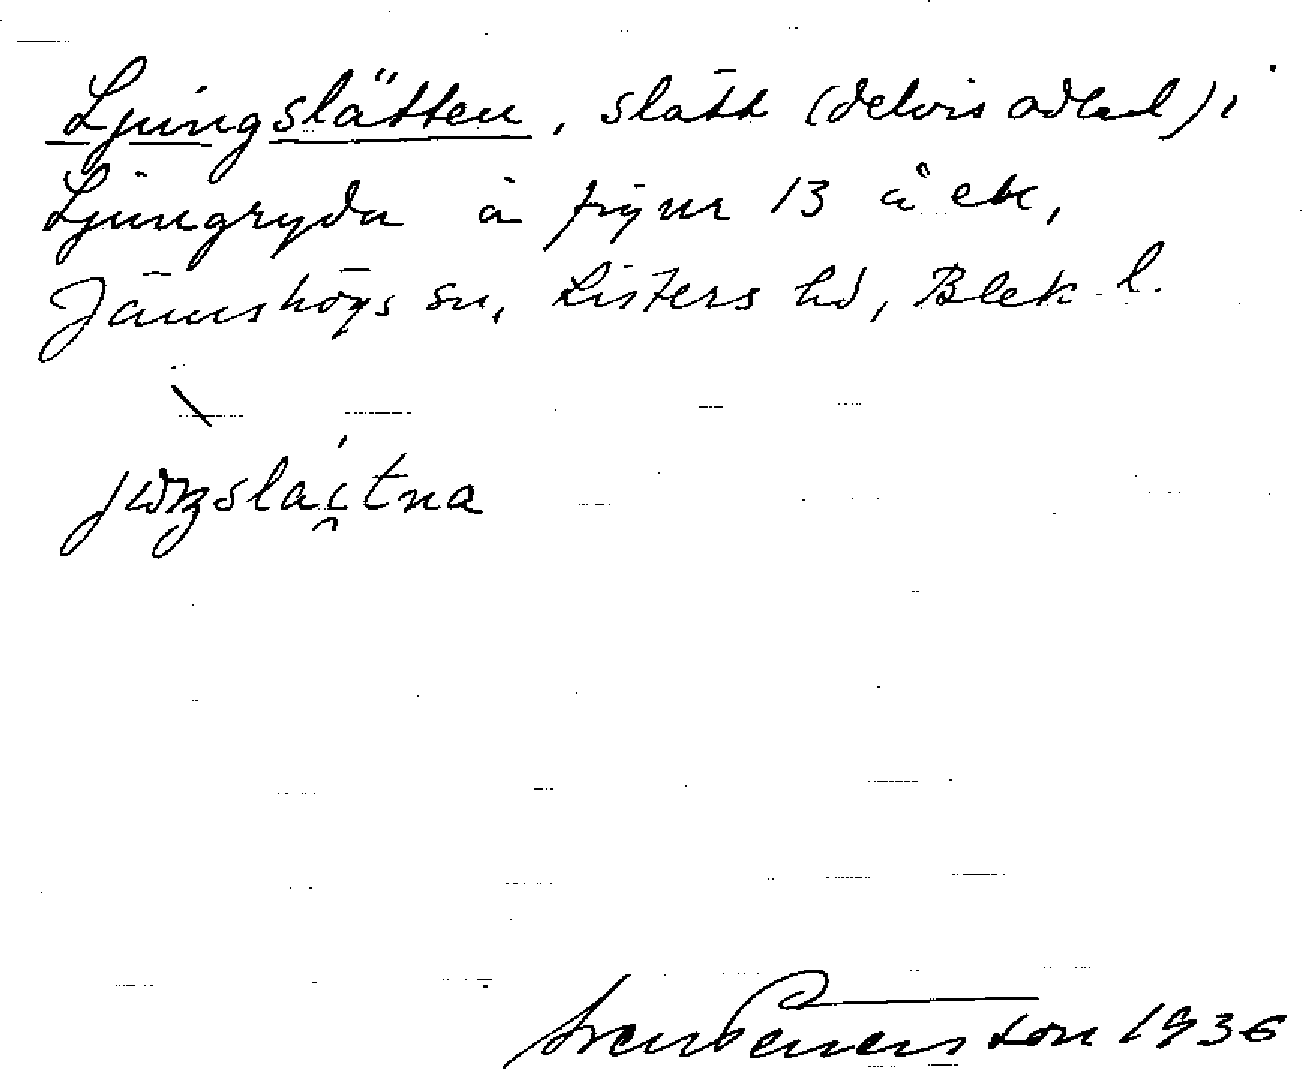 Ljungslätten, slätt (delvis odlad) i
Ljungryda å 13 å ek,
Jämshögs sn, Listers hd, Blek. l.
Sven Benson 1936